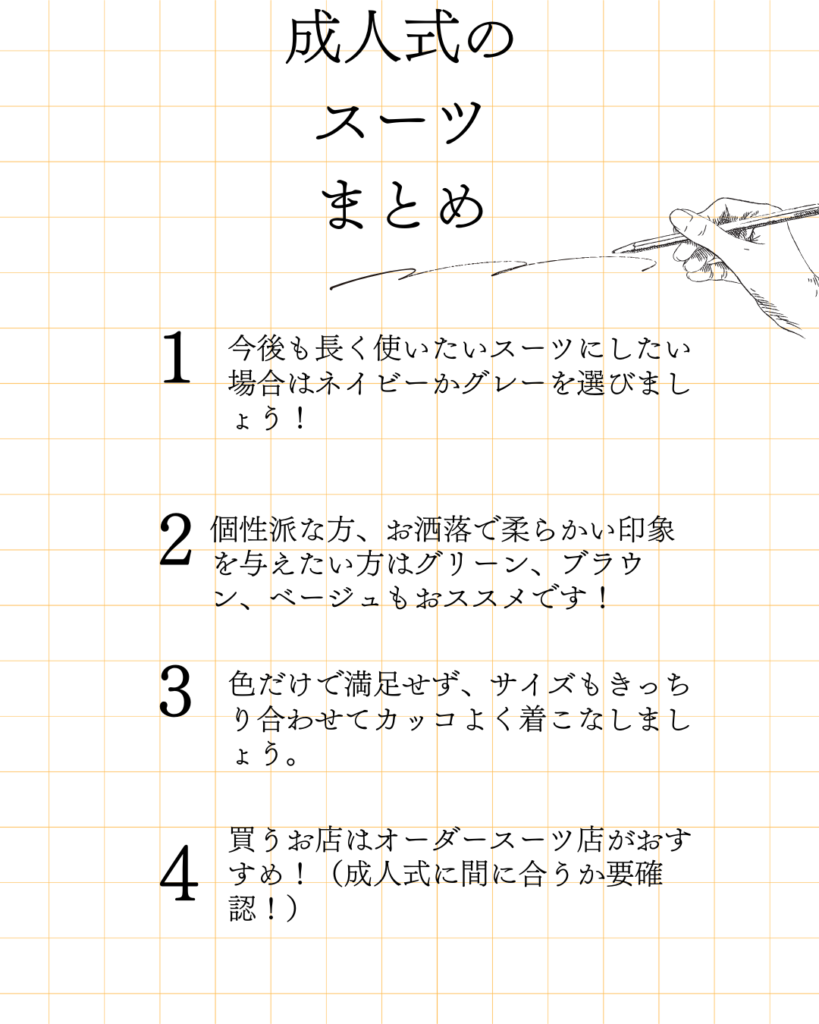 成人式の
スーツ
まとめ
1
今後も長く使いたいスーツにしたい
場合はネイビーかグレーを選びまし
ょう！
2
個性派な方、お洒落で柔らかい印象
を与えたい方はグリーン、ブラウ
ン、ベージュもおススメです！
3
色だけで満足せず、サイズもきっち
り合わせてカッコよく着こなしまし
ょう。
4
買うお店はオーダースーツ店がおす
すめ！（成人式に間に合うか要確
認！）